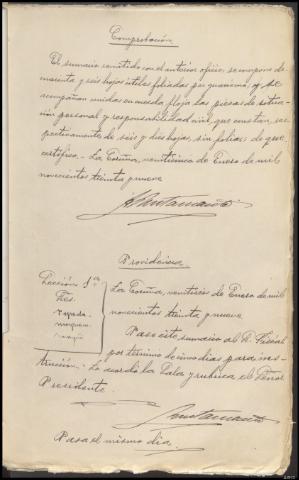 Comprobación
El sumario remitido con el anterior oficio, se compone de
cincuenta y seis hojas útiles foliadas por guarismo, y se
acompañan unidas en cuerda floja las piezas de situa-
ción personal y responsabilidad civil, que constan, res-
pectivamente, de seis y dos hojas, sin foliar; de que
certifico.- La Coruña, veinticinco de Enero de mil
novecientos treinta y nueve
Providencia
Sección 1ª
Tres.
La Coruña, veintiseis de Enero de mil
novecientos treinta y nueve
Pase este sumario al S. Fiscal
por término de cinco días para ins-
trucción.- Lo acordó la Sala y rubrica el Señor
Presidente.
Pasa el mismo día.